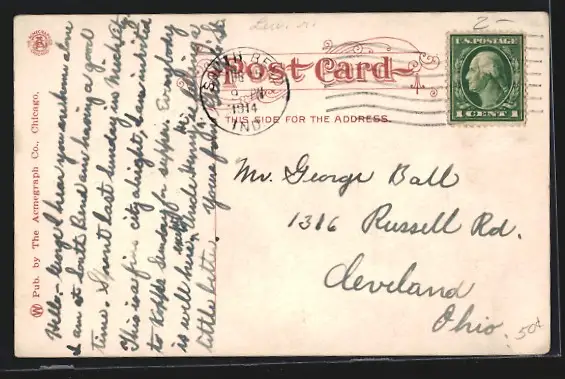 Hello - George I hear you are at home alone
I am at South Bend and having a good
time. Spent last Sunday in Mich City
This is a fine city alright, I am invited
to Koffle Sunday for supper. Everybody
is well here, Uncle Henry is feeling a
little better. Yours from
Pub. by The Acmegraph Co., Chicago.
Post Card
THIS SIDE FOR THE ADDRESS.
SOUTH BEND
1914
IND.
2-
U.S. POSTAGE
1 CENT 1
Mr. George Ball
1316 Russell Rd.
Cleveland
Ohio.
50¢